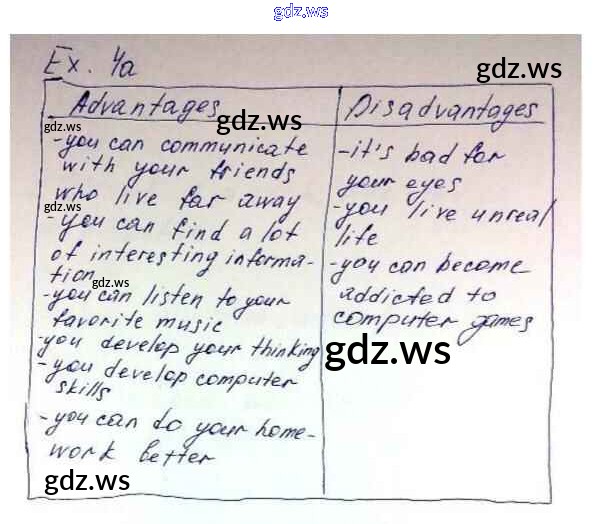 gdz.ws
Ex. 4a
gdz.ws
Advantages
Disadvantages
gdz.ws
gdz.ws
-you can communicate
with your friends
who live far away
gdz.ws
-you can find a lot
of interesting informa-
tion
gdz.ws
-you can listen to your
favorite music
-you develop your thinking
-you develop computer
skills
-you can do your home-
work better
gdz.ws
-it's bad for
your eyes
-you live unreal
life
-you can become
addicted to
computer games
gdz.ws
gdz.ws